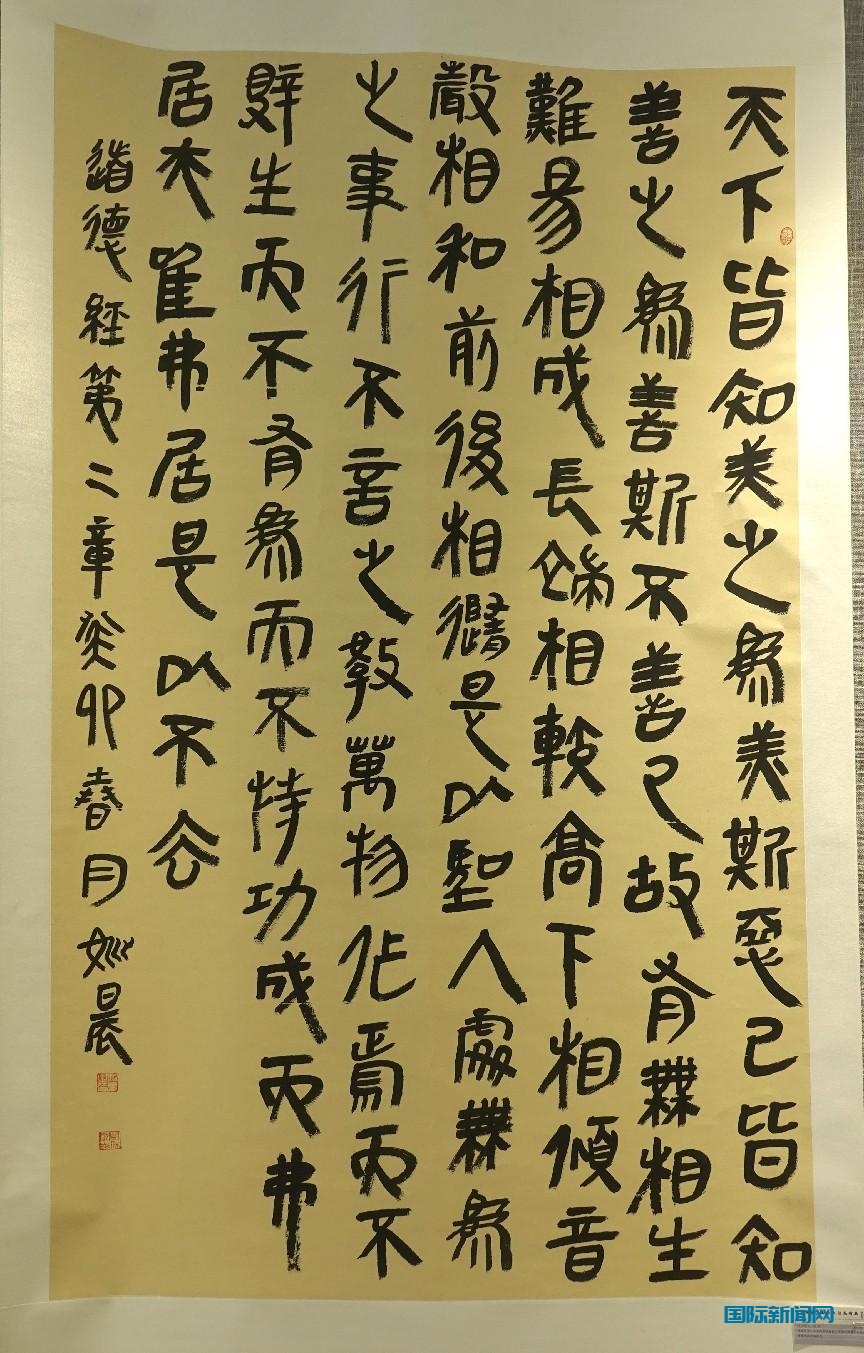 天下皆知美之為美斯惡已皆知
善之為善斯不善已故有無相生
難易相成長短相較高下相傾音
聲相和前後相隨是以聖人處無為
之事行不言之教萬物作焉而不
辭生而不有為而不恃功成而弗
居夫唯弗居是以不去
道德經第二章癸卯春月姚晨
国际新闻网